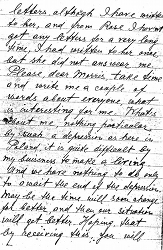 letters, although I have written
to her, and from Rose I haven't
got any letters for a very long
time, I had written to her once
but she did not answer me.
Please dear Morris, take some
time and write me a couple of
words about everyone, what
is interesting you me. What's
about me, nothing particular,
by such a depression as there is in
Poland, it is quite difficult by
my business to make a living
and we have nothing to do, only
to await the end of the depression
may be the time will soon change
for better, and then our situation
will get better. Hoping that
by receiving this, you will